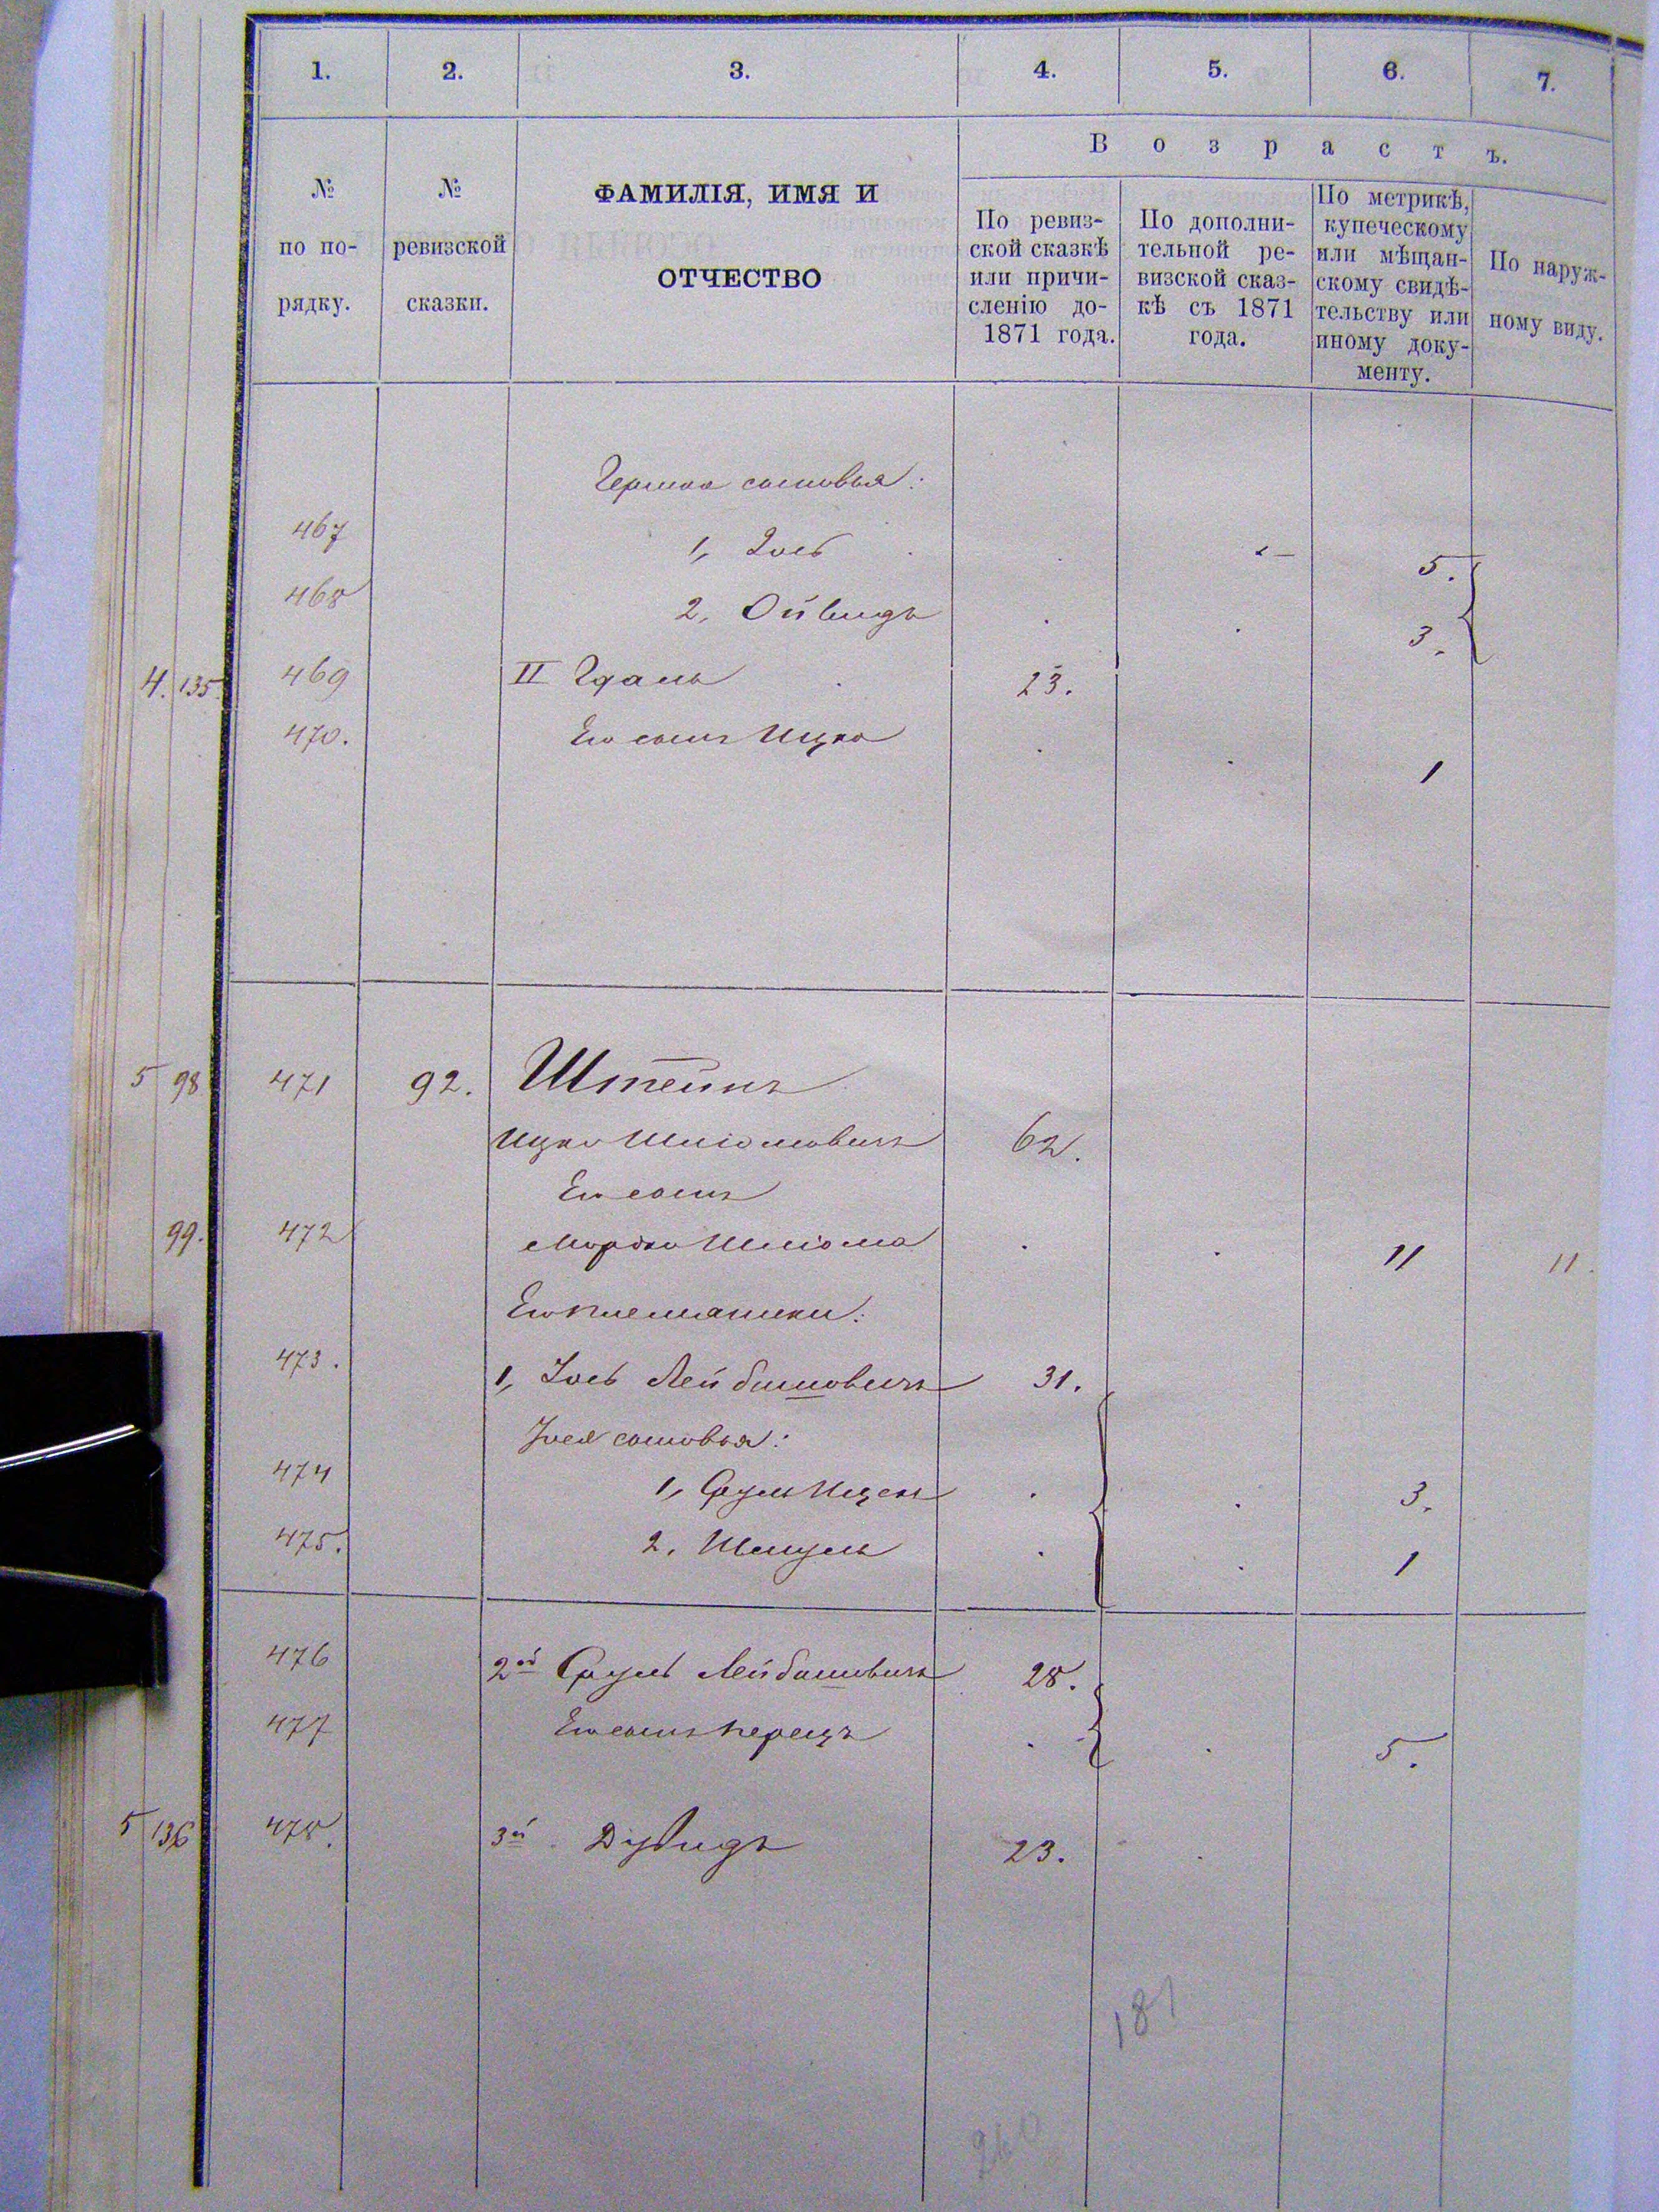 1. 2. 3. 4. 5. 6. 7.
№ по порядку.
№ ревизской сказки.
ФАМИЛІЯ, ИМЯ И
ОТЧЕСТВО
Возрастъ.
По ревиз-
ской сказкѣ
или причи-
сленію до-
1871 года.
По дополни-
тельной ре-
визской сказ-
кѣ съ 1871
года.
По метрикѣ,
купеческому
или мѣщан-
скому свидѣ-
тельству или
иному доку-
менту.
По наруж-
ному виду.
сыновья:
467 1, 5.
468 2, 3.
4. 135 469 II 23.
470. Его сынъ Ицко 1
5 98 471 92. Штейнъ
Ицко Шліомовичъ 62.
Его сынъ
99. 472 Мордко Шліома 11 11.
Его племянники:
473. 1, Іось Лейбишовичъ 31.
Іося сыновья:
474 1, Сруль Ицекъ 3.
475. 2, Шмуль 1
476 2й Сруль Лейбишовичъ 28.
477 Его сынъ Перецъ 5.
5 136 478. 3й. Дувидъ 23.
181
260